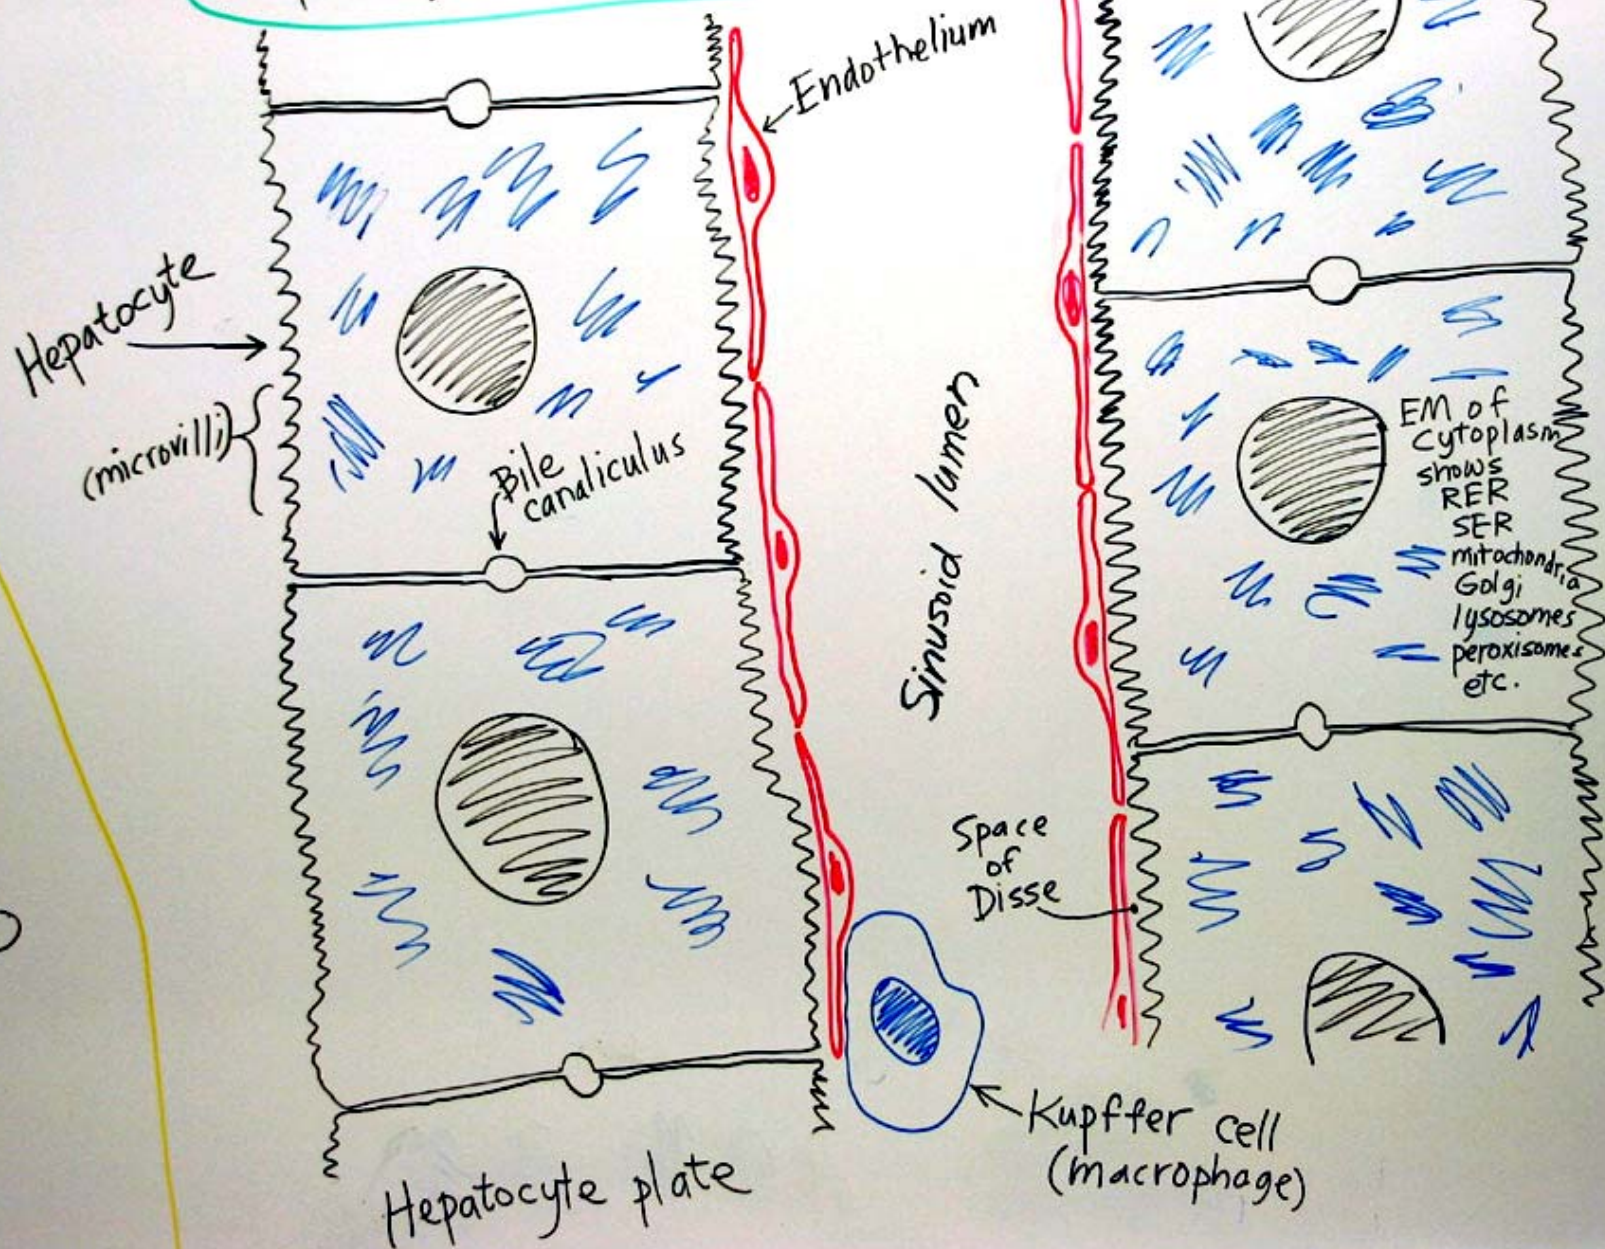 Endothelium
Hepatocyte
(microvilli)
Bile
canaliculus
Sinusoid lumen
EM of
Cytoplasm
shows
RER
SER
mitochondria
Golgi
lysosomes
peroxisomes
etc.
Space
of
Disse
Kupffer cell
(macrophage)
Hepatocyte plate